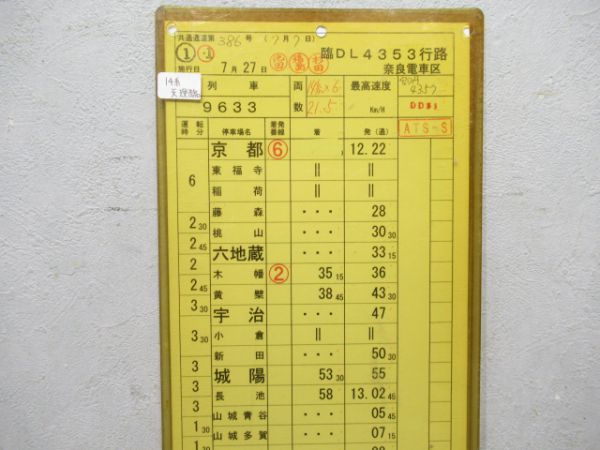 共通達道第386号 (7月7日)
臨DL4353行路
① ・1
施行日 7月27日
奈良電車区
14系
列車 両 14系×6 最高速度
9633 数 21.5 Km/H
4357
DD51
ATS-S
運転時分 停車場名 着発番線 着 発(通)
京都 ⑥ 12.22
6 東福寺 || ||
稲荷 || ||
藤森 ・・・ 28
2 30 桃山 ・・・ 30 30
2 45 六地蔵 ・・・ 33 15
2 木幡 ② 35 15 36
2 45 黄檗 38 45 43 30
3 30 宇治 ・・・ 47
小倉 || ||
3 30 新田 ・・・ 50 30
3 城陽 53 30 55
3 長池 58 13.02 45
3 山城青谷 ・・・ 05 45
1 30 山城多賀 ・・・ 07 15